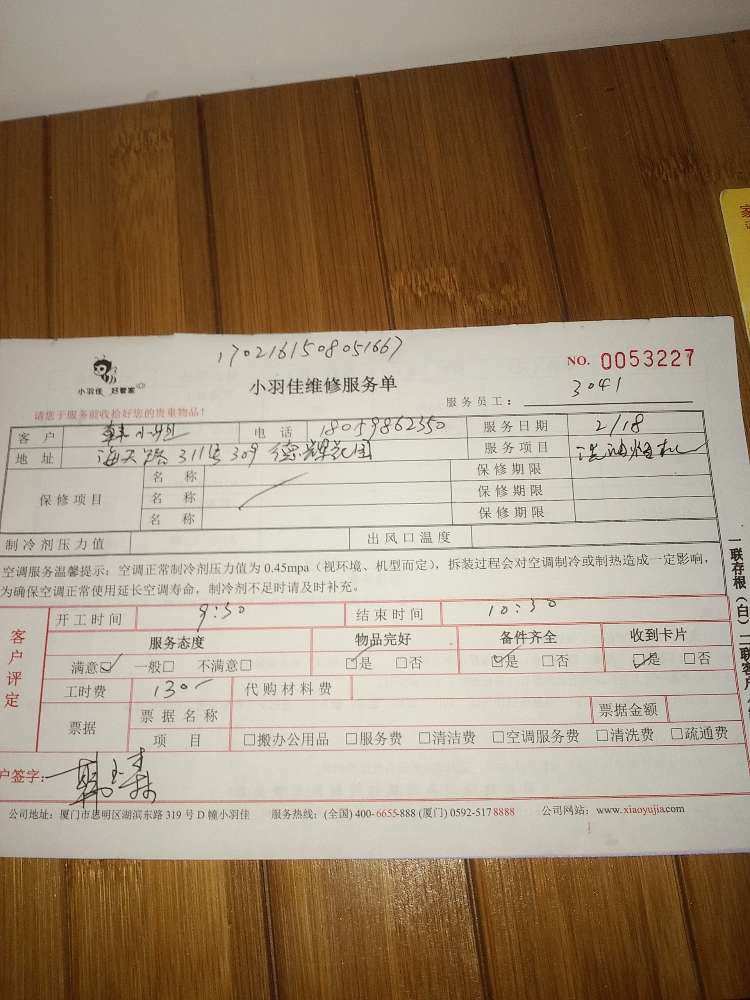 170216150805166​7
NO. 0053227
小羽佳 好管家
小羽佳维修服务单
服务员工： 3041
请您于服务前收拾好您的贵重物品！
客 户 韩小姐 电 话 18059862350 服务日期 2/18
地 址 海天路311号309德辉花园 服务项目 洗油烟机
保修项目 名 称 保修期限
名 称 保修期限
名 称 保修期限
制冷剂压力值 出风口温度
空调服务温馨提示：空调正常制冷剂压力值为 0.45mpa（视环境、机型而定），拆装过程会对空调制冷或制热造成一定影响，
为确保空调正常使用延长空调寿命，制冷剂不足时请及时补充。
客户评定
开工时间 9:30 结束时间 10:30
服务态度 物品完好 备件齐全 收到卡片
满意☑ 一般□ 不满意□ ☑是 □否 ☑是 □否 ☑是 □否
工时费 130- 代购材料费
票据 票据名称 票据金额
项 目 □搬办公用品 □服务费 □清洁费 □空调服务费 □清洗费 □疏通费
户签字：
公司地址：厦门市思明区湖滨东路 319 号 D 幢小羽佳 服务热线：(全国) 400-6655-888 (厦门) 0592-517 8888 公司网站：www.xiaoyujia.com
一联存根（白）二联客户
家